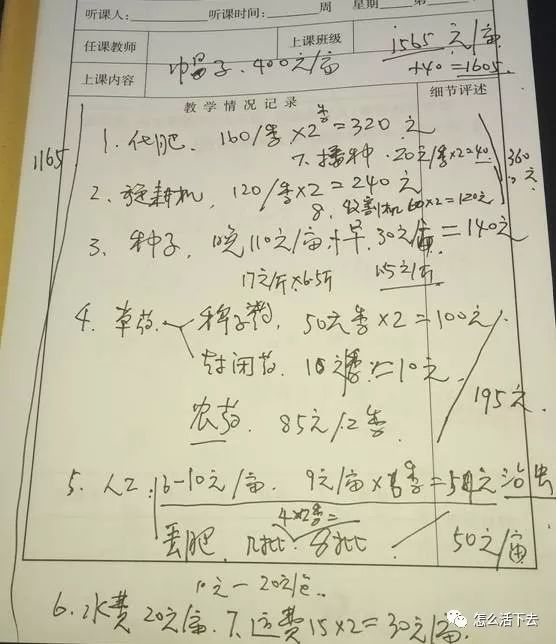 听课人: 听课时间: 周 星期 第
任课教师 上课班级 1565元/亩
+40=1605.
上课内容 400元/亩
教学情况记录 细节评述
1165
1. 化肥. 160/季×2季=320元
7. 播种. 20元/季×2=40.
360元
2. 旋耕机, 120/季×2=240元
8. 收割机 60×2=120元
3. 种子, 晚110元/亩+早.30元/亩=140元
17元/斤×6.5斤 15元/斤
4. 草药. 稗子药. 50元季×2=100元
封闭药. 10元季=10元.
195元.
农药. 85元/2季.
5. 人工: 6-10元/亩. 9元/亩× 季= 元治虫
4×2季=
丢肥. 50元/亩
10元-20元/包.
6. 水费20元/亩. 7. 运费15×2=30元/亩.
怎么活下去